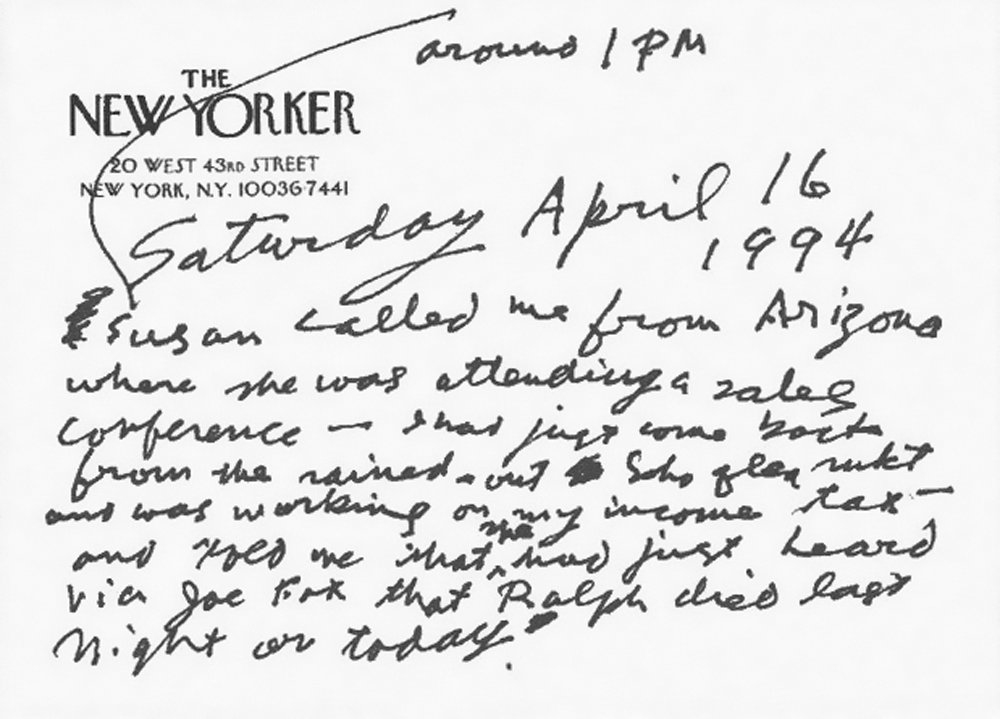 around 1 PM
THE
NEW YORKER
20 WEST 43RD STREET
NEW YORK, N.Y. 10036-7441
Saturday April 16
1994
Susan called me from Arizona
where she was attending a sales
conference — I had just come back
from the rained-out Soho flea mkt
and was working on my income tax —
and told me that she had just heard
via Joe Fox that Ralph died last
night or today.